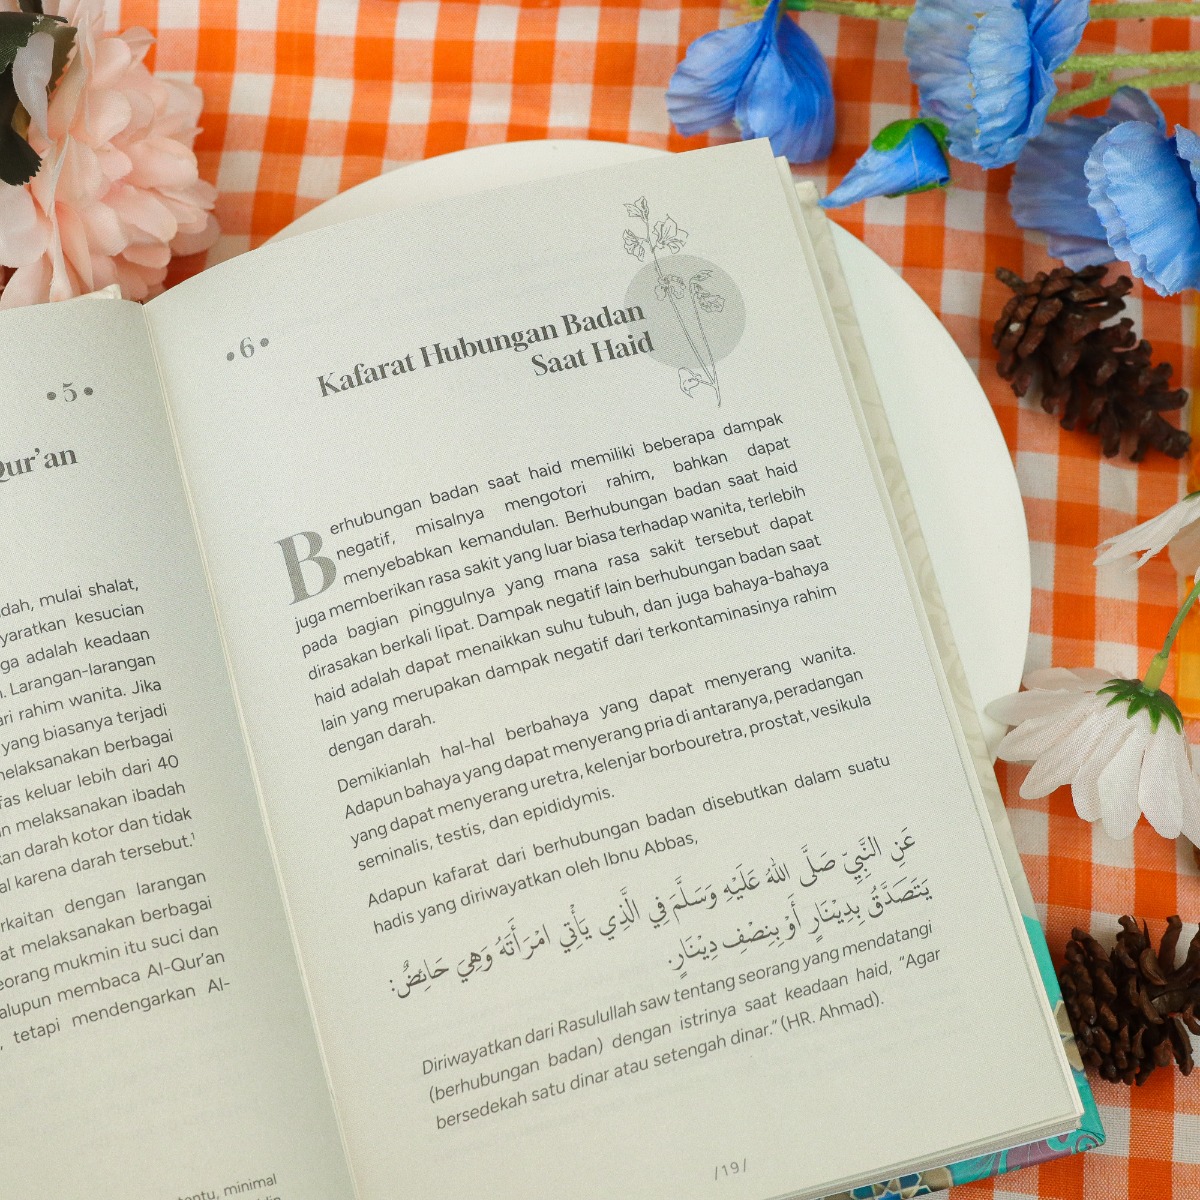 • 5 •
Qur'an
dah, mulai shalat,
yaratkan kesucian
ga adalah keadaan
. Larangan-larangan
ari rahim wanita. Jika
yang biasanya terjadi
elaksanakan berbagai
fas keluar lebih dari 40
n melaksanakan ibadah
kan darah kotor dan tidak
al karena darah tersebut.¹
rkaitan dengan larangan
at melaksanakan berbagai
eorang mukmin itu suci dan
alupun membaca Al-Qur'an
, tetapi mendengarkan Al-
entu, minimal
• 6 •
Kafarat Hubungan Badan
Saat Haid
Berhubungan badan saat haid memiliki beberapa dampak
negatif, misalnya mengotori rahim, bahkan dapat
menyebabkan kemandulan. Berhubungan badan saat haid
juga memberikan rasa sakit yang luar biasa terhadap wanita, terlebih
pada bagian pinggulnya yang mana rasa sakit tersebut dapat
dirasakan berkali lipat. Dampak negatif lain berhubungan badan saat
haid adalah dapat menaikkan suhu tubuh, dan juga bahaya-bahaya
lain yang merupakan dampak negatif dari terkontaminasinya rahim
dengan darah.
Demikianlah hal-hal berbahaya yang dapat menyerang wanita.
Adapun bahaya yang dapat menyerang pria di antaranya, peradangan
yang dapat menyerang uretra, kelenjar borbouretra, prostat, vesikula
seminalis, testis, dan epididymis.
Adapun kafarat dari berhubungan badan disebutkan dalam suatu
hadis yang diriwayatkan oleh Ibnu Abbas,
عَنِ النَّبِيِّ صَلَّى اللهُ عَلَيْهِ وَسَلَّمَ فِي الَّذِي يَأْتِي امْرَأَتَهُ وَهِيَ حَائِضٌ:
يَتَصَدَّقُ بِدِيْنَارٍ أَوْ بِنِصْفِ دِيْنَارٍ.
Diriwayatkan dari Rasulullah saw tentang seorang yang mendatangi
(berhubungan badan) dengan istrinya saat keadaan haid, “Agar
bersedekah satu dinar atau setengah dinar.” (HR. Ahmad).
/ 19 /